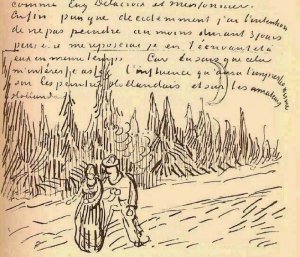 comme Eug Delacroix et Meissonier.
Enfin puisque decidemment j'ai l'intention
de ne pas peindre au moins durant 3 jours
peut-être me reposerai je en t'ecrivant et à
eux en meme temps. Car tu sais que cela
m'interesse assez l'influence qu'aura l'impressionisme
sur les peintres hollandais et sur les amateurs
hollandais.